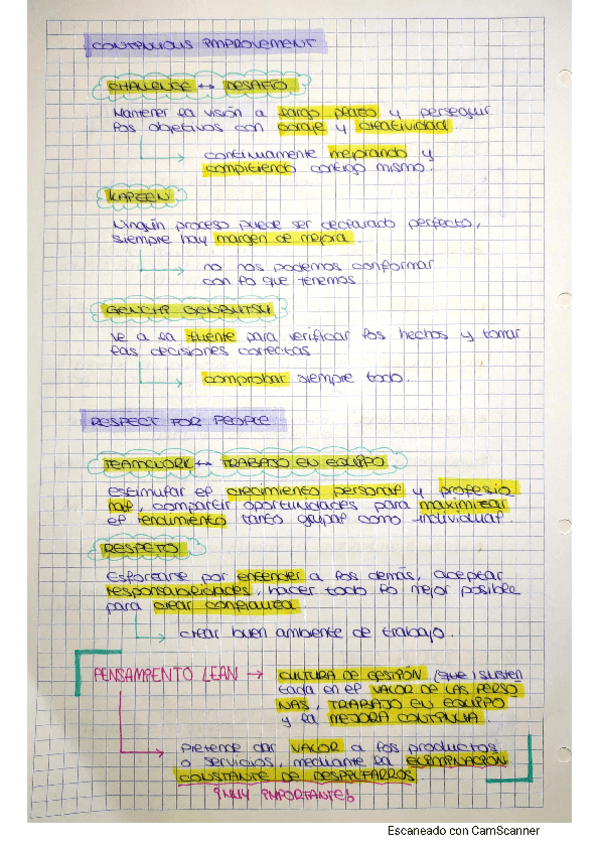 CONTINUOUS IMPROVEMENT
CHALLENGE ↔ DESAFÍO
Mantener la visión a largo plazo y perseguir
los objetivos con coraje y creatividad
continuamente mejorando y
compitiendo contigo mismo.
KAIZEN
Ningún proceso puede ser declarado perfecto,
siempre hay margen de mejora.
no nos podemos conformar
con lo que tenemos.
GENCHI GENBUTSU
Ve a la fuente para verificar los hechos y tomar
las decisiones correctas
comprobar siempre todo.
RESPECT FOR PEOPLE
TEAMWORK ↔ TRABAJO EN EQUIPO
Estimular el crecimiento personal y profesio
nal, compartir oportunidades para maximizar
el rendimiento tanto grupal como individual.
RESPETO
Esforzarse por entender a los demás, aceptar
responsabilidades, hacer todo lo mejor posible
para crear confianza.
crear buen ambiente de trabajo.
PENSAMIENTO LEAN → CULTURA DE GESTIÓN, (que) susten
tada en el VALOR DE LAS PERSO
NAS, TRABAJO EN EQUIPO
y la MEJORA CONTINUA.
Pretende dar VALOR a los productos
o servicios, mediante la ELIMINACIÓN
CONSTANTE DE DESPILFARROS
¡MUY IMPORTANTE!
Escaneado con CamScanner